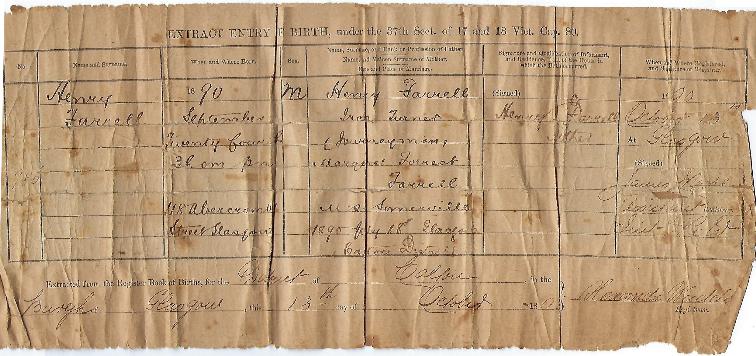 EXTRACT ENTRY OF BIRTH, under the 37th Sect. of 17 and 18 Vict. Cap. 80.
No.
Name and Surname.
When and Where Born.
Sex.
Name, Surname, and Rank or Profession of Father.
Name, and Maiden Surname of Mother.
Date and Place of Marriage.
Signature and Qualification of Informant,
and Residence, if out of the House in
which the Birth occurred.
When and Where Registered,
and Signature of Registrar.
Henry
Farrell
1890
September
Twenty fourth
pm
118 Abercromby
Street Glasgow
M
Henry Farrell
Iron Turner
(Journeyman)
Margaret Forrest
Farrell
M.S. Somerville
1890 July 18th Glasgow
(Signed)
Henry Farrell
Father
1890
October 13th
At Glasgow
(Signed)
James
Assistant Registrar
Extracted from the Register Book of Births, for the District of Calton in the
Burgh of Glasgow, this 13th day of October 18
Registrar.